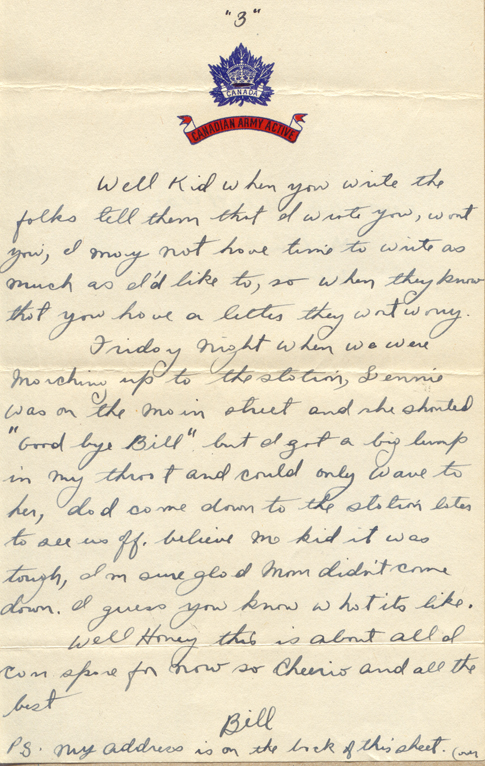 "3"
CANADA
CANADIAN ARMY ACTIVE
Well Kid when you write the
folks tell them that I wrote you, wont
you, I may not have time to write as
much as I'd like to, so when they know
that you have a letter they wont worry.
Friday night when we were
marching up to the station, Lennie
was on the main street and she shouted
"Good bye Bill" but I got a big lump
in my throat and could only wave to
her, dad came down to the station later
to see us off. believe me kid it was
tough, I'm sure glad Mom didn't come
down. I guess you know what its like.
Well Honey this is about all I
can spare for now so Cheerio and all the
best
Bill
P.S. my address is on the back of this sheet. (over